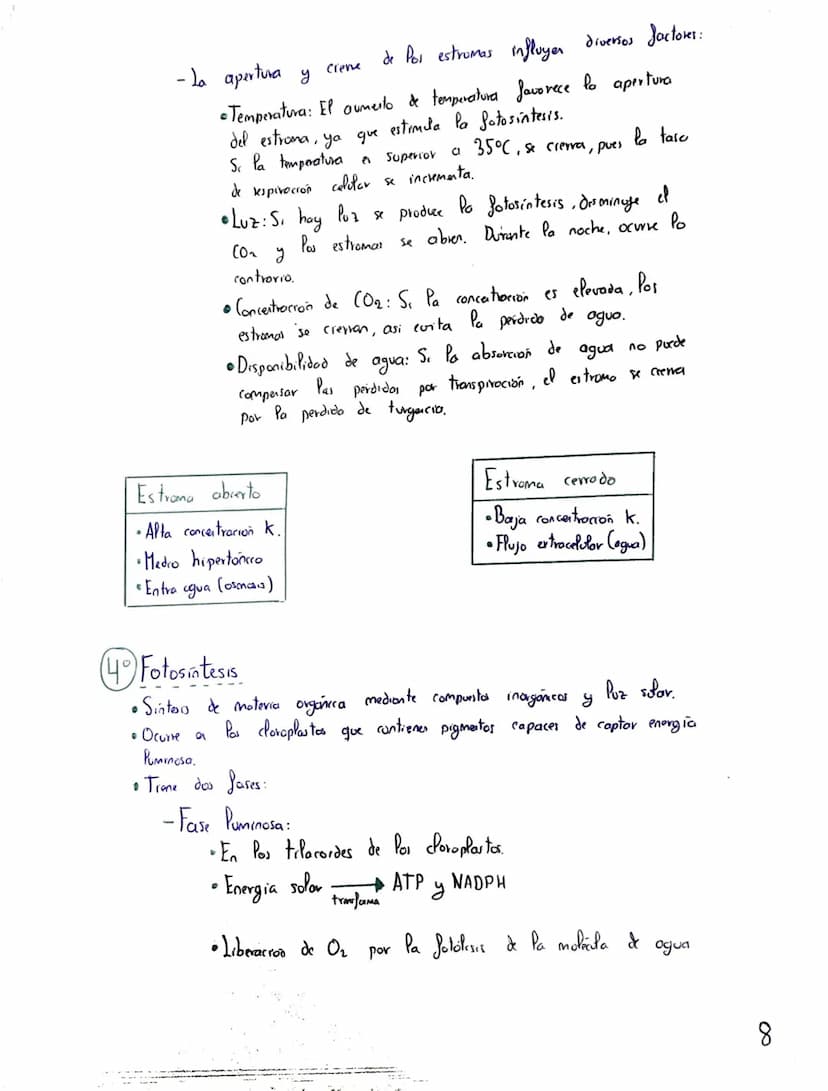 - La apertura y cierre de los estromas influyen diversos factores:
• Temperatura: El aumento de temperatura favorece la apertura
del estroma, ya que estimula la fotosíntesis.
Si la temperatura es superior a 35ºC, se cierra, pues la tasa
de respiración celular se incrementa.
• Luz: Si hay luz se produce la fotosíntesis, disminuye el
CO2 y los estromas se abren. Durante la noche, ocurre lo
contrario.
• Concentración de CO2: Si la concentración es elevada, los
estromas se cierran, asi evita la perdida de agua.
• Disponibilidad de agua: Si la absorción de agua no puede
compensar las perdidas por transpiración, el estroma se cierra
por la perdida de turgencia.
Estroma abierto
• Alta concentración K.
• Medio hipertónico
• Entra agua (osmosis)
Estroma cerrado
• Baja concentración K.
• Flujo extracelular (agua)
4º Fotosíntesis
• Síntesis de materia orgánica mediante compuestos inorgánicos y luz solar.
• Ocurre en los cloroplastos que contienen pigmentos capaces de captar energía
luminosa.
• Tiene dos fases:
- Fase luminosa:
• En los tilacoides de los cloroplastos.
• Energía solar → ATP y NADPH
transforma
• Liberación de O2 por la fotólisis de la molécula de agua
8